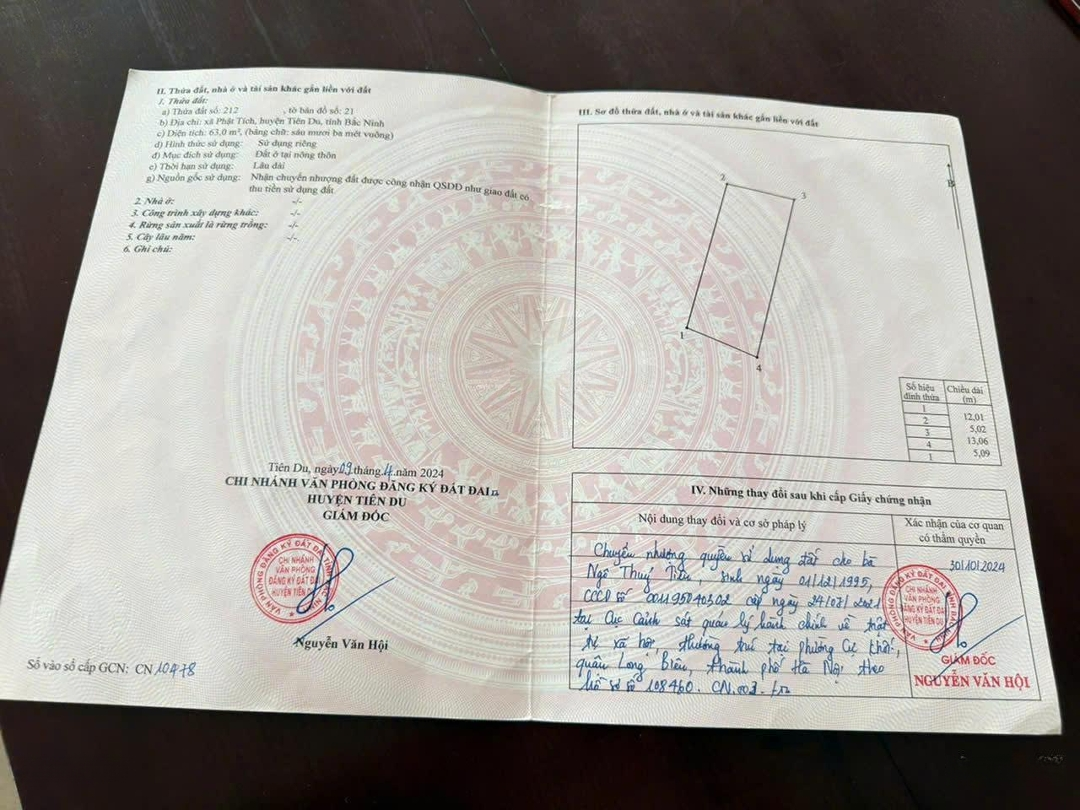 II. Thửa đất, nhà ở và tài sản khác gắn liền với đất
1. Thửa đất:
a) Thửa đất số: 212 , tờ bản đồ số: 21
b) Địa chỉ: xã Phật Tích, huyện Tiên Du, tỉnh Bắc Ninh
c) Diện tích: 63,0 m², (bằng chữ: sáu mươi ba mét vuông)
d) Hình thức sử dụng: Sử dụng riêng
đ) Mục đích sử dụng: Đất ở tại nông thôn
e) Thời hạn sử dụng: Lâu dài
g) Nguồn gốc sử dụng: Nhận chuyển nhượng đất được công nhận QSDĐ như giao đất có
thu tiền sử dụng đất.
2. Nhà ở: -/-
3. Công trình xây dựng khác: -/-
4. Rừng sản xuất là rừng trồng: -/-
5. Cây lâu năm: -/-.
6. Ghi chú:
Tiên Du, ngày 09 tháng 4 năm 2024
CHI NHÁNH VĂN PHÒNG ĐĂNG KÝ ĐẤT ĐAI
HUYỆN TIÊN DU
GIÁM ĐỐC
VĂN PHÒNG ĐĂNG KÝ ĐẤT ĐAI TỈNH BẮC NINH
CHI NHÁNH
VĂN PHÒNG
ĐĂNG KÝ ĐẤT ĐAI
HUYỆN TIÊN DU
Nguyễn Văn Hội
Số vào sổ cấp GCN: CN 10478
III. Sơ đồ thửa đất, nhà ở và tài sản khác gắn liền với đất
B
2
3
1
4
Số hiệu đỉnh thửa Chiều dài (m)
1
12,01
2
5,02
3
13,06
4
5,09
1
IV. Những thay đổi sau khi cấp Giấy chứng nhận
Nội dung thay đổi và cơ sở pháp lý
Xác nhận của cơ quan
có thẩm quyền
Chuyển nhượng quyền sử dụng đất cho bà
Ngô Thuý Tiên, sinh ngày 01/12/1995,
CCCD số cấp ngày
tại Cục Cảnh sát quản lý hành chính về trật
tự xã hội, thường trú tại phường Cự Khối,
quận Long Biên, thành phố Hà Nội theo
hồ sơ số 108460. CN.003.
30/10/2024
VĂN PHÒNG ĐĂNG KÝ ĐẤT ĐAI TỈNH BẮC NINH
CHI NHÁNH
VĂN PHÒNG
ĐĂNG KÝ ĐẤT ĐAI
HUYỆN TIÊN DU
GIÁM ĐỐC
NGUYỄN VĂN HỘI